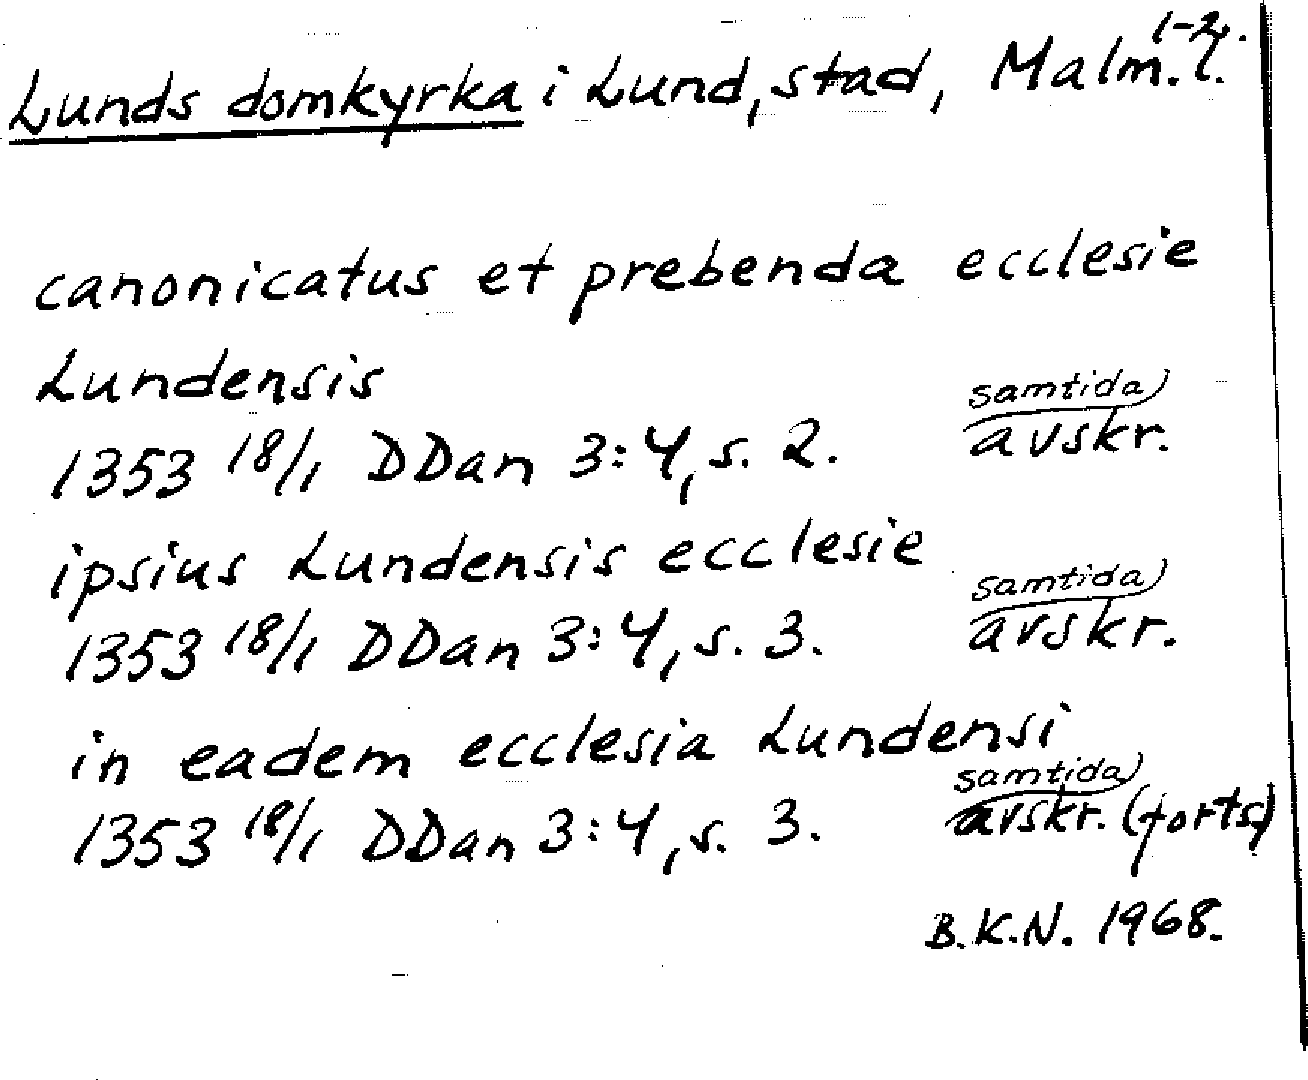 1-2.
Lunds domkyrka i Lund, stad, Malm. l.
canonicatus et prebenda ecclesie
Lundensis
samtida
1353 18/1 DDan 3:4, s. 2. avskr.
ipsius Lundensis ecclesie
samtida
1353 18/1 DDan 3:4, s. 3. avskr.
in eadem ecclesia Lundensi
samtida
1353 18/1 DDan 3:4, s. 3. avskr. (forts)
B.K.N. 1968.